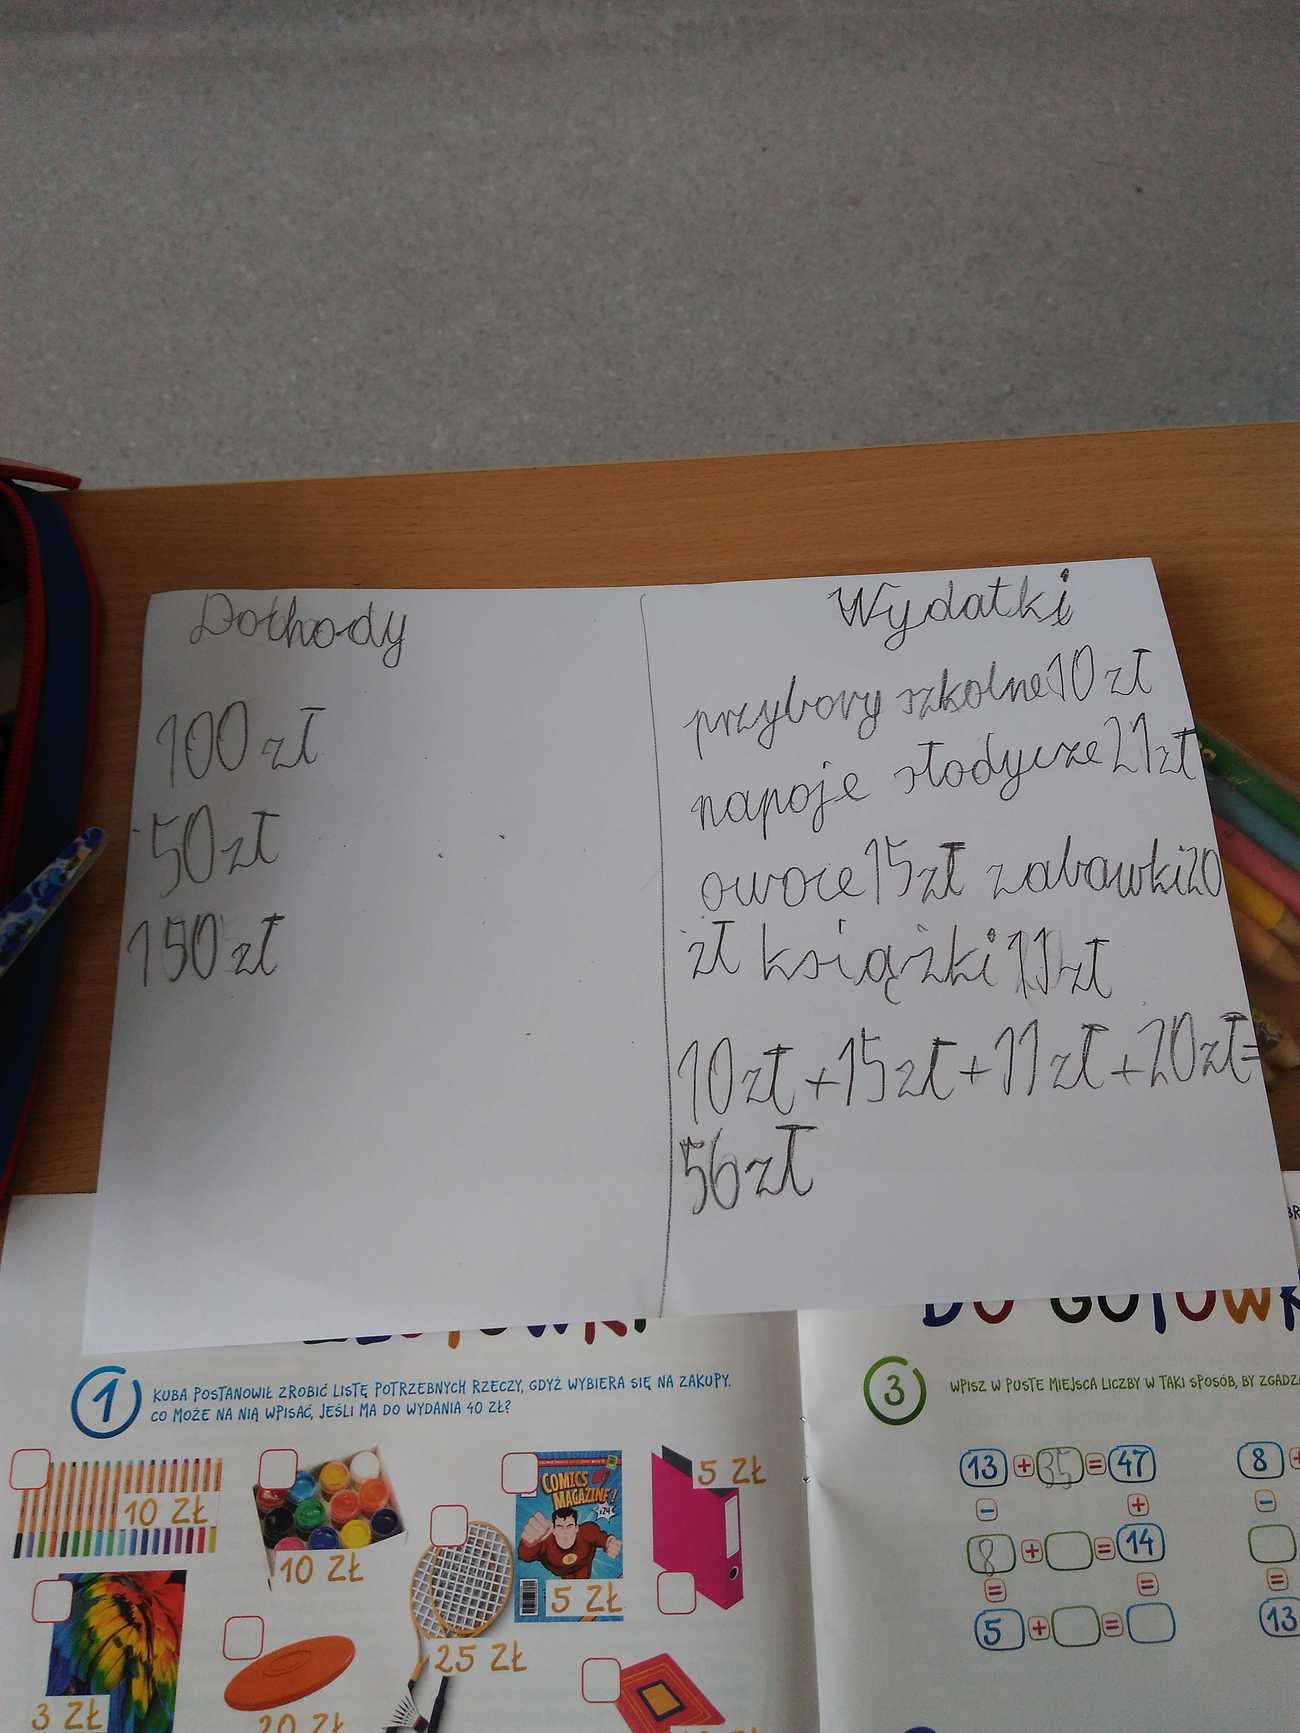 Dochody
100 zł
50 zł
150 zł
Wydatki
przybory szkolne 10 zł
napoje słodycze 21 zł
owoce 15 zł zabawki 20
zł książki 11 zł
10 zł + 15 zł + 11 zł + 20 zł =
56 zł
1
KUBA POSTANOWIŁ ZROBIĆ LISTĘ POTRZEBNYCH RZECZY, GDYŻ WYBIERA SIĘ NA ZAKUPY.
CO MOŻE NA NIĄ WPISAĆ, JEŚLI MA DO WYDANIA 40 ZŁ?
10 ZŁ
10 ZŁ
COMICS
MAGAZINE!
5 ZŁ
5 ZŁ
3 ZŁ
20 ZŁ
25 ZŁ
DO GOTÓWK
3
WPISZ W PUSTE MIEJSCA LICZBY W TAKI SPOSÓB, BY ZGADZA
13 + 35 = 47
8 +
- +
-
8 + = 14
= =
=
5 + =
13